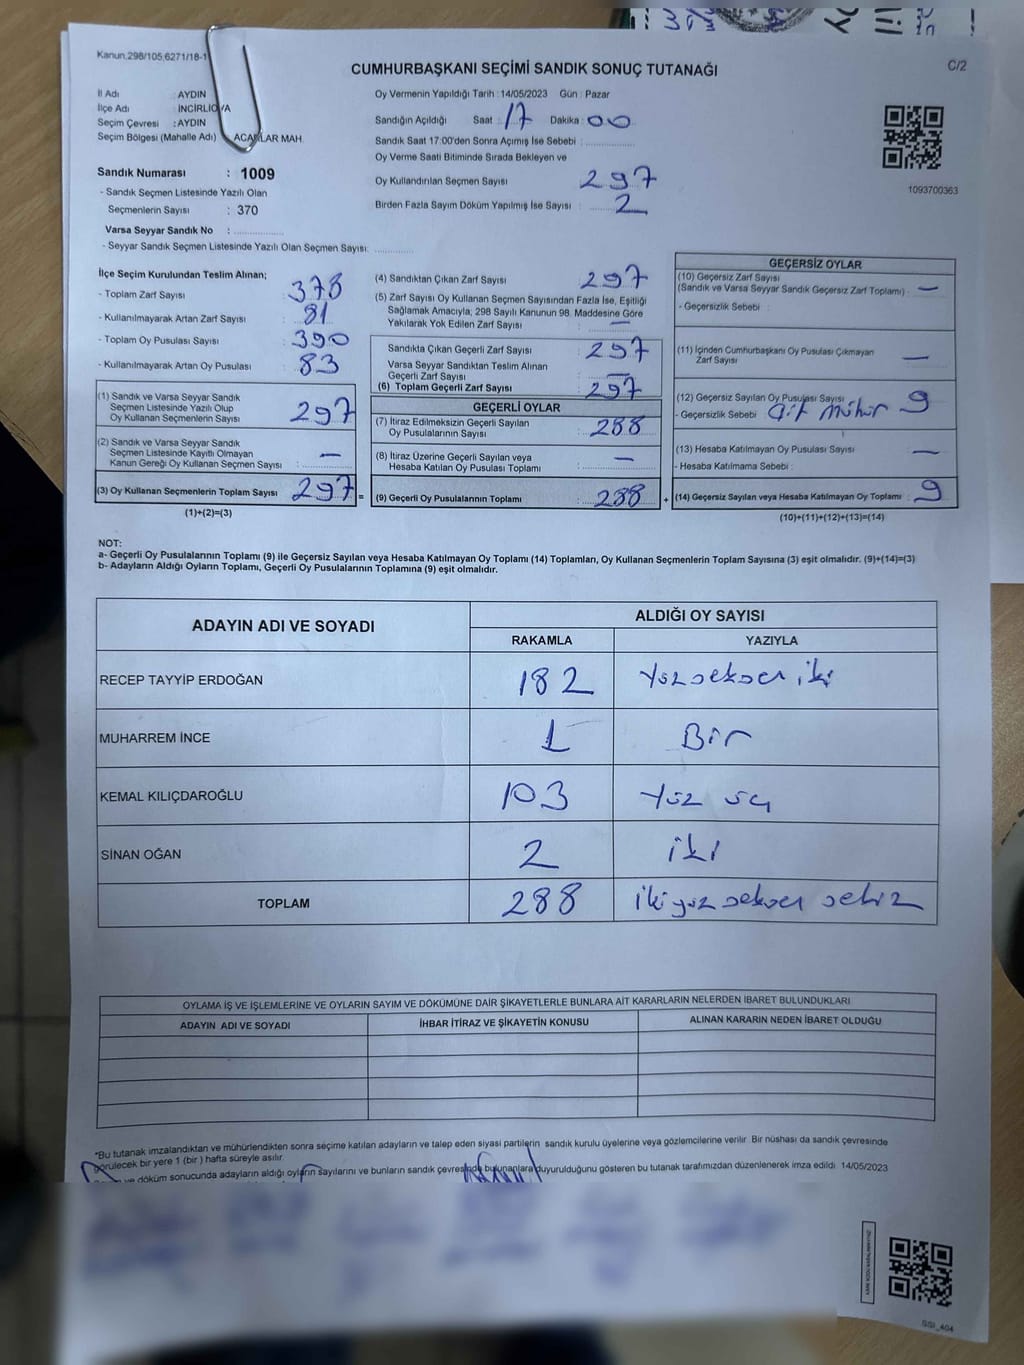 Kanun.298/105,6271/18-1
C/2
CUMHURBAŞKANI SEÇİMİ SANDIK SONUÇ TUTANAĞI
İl Adı : AYDIN
İlçe Adı : İNCİRLİOVA
Seçim Çevresi : AYDIN
Seçim Bölgesi (Mahalle Adı) : ACARLAR MAH.
Sandık Numarası : 1009
- Sandık Seçmen Listesinde Yazılı Olan
Seçmenlerin Sayısı : 370
Varsa Seyyar Sandık No :
- Seyyar Sandık Seçmen Listesinde Yazılı Olan Seçmen Sayısı:
Oy Vermenin Yapıldığı Tarih : 14/05/2023 Gün : Pazar
Sandığın Açıldığı Saat : 17 Dakika : 00
Sandık Saat 17:00'den Sonra Açımış İse Sebebi :
Oy Verme Saati Bitiminde Sırada Bekleyen ve
Oy Kullandırılan Seçmen Sayısı : 297
Birden Fazla Sayım Döküm Yapılmış İse Sayısı : 2
1093700363
İlçe Seçim Kurulundan Teslim Alınan;
- Toplam Zarf Sayısı : 378
- Kullanılmayarak Artan Zarf Sayısı : 81
- Toplam Oy Pusulası Sayısı : 390
- Kullanılmayarak Artan Oy Pusulası : 83
(1) Sandık ve Varsa Seyyar Sandık
Seçmen Listesinde Yazılı Olup
Oy Kullanan Seçmenlerin Sayısı : 297
(2) Sandık ve Varsa Seyyar Sandık
Seçmen Listesinde Kayıtlı Olmayan
Kanun Gereği Oy Kullanan Seçmen Sayısı : —
(3) Oy Kullanan Seçmenlerin Toplam Sayısı : 297 =
(1)+(2)=(3)
(4) Sandıktan Çıkan Zarf Sayısı : 297
(5) Zarf Sayısı Oy Kullanan Seçmen Sayısından Fazla İse, Eşitliği
Sağlamak Amacıyla; 298 Sayılı Kanunun 98. Maddesine Göre
Yakılarak Yok Edilen Zarf Sayısı : —
Sandıkta Çıkan Geçerli Zarf Sayısı : 297
Varsa Seyyar Sandıktan Teslim Alınan
Geçerli Zarf Sayısı :
(6) Toplam Geçerli Zarf Sayısı : 297
GEÇERLİ OYLAR
(7) İtiraz Edilmeksizin Geçerli Sayılan
Oy Pusulalarının Sayısı : 288
(8) İtiraz Üzerine Geçerli Sayılan veya
Hesaba Katılan Oy Pusulası Toplamı : —
(9) Geçerli Oy Pusulalarının Toplamı : 288 +
GEÇERSİZ OYLAR
(10) Geçersiz Zarf Sayısı
(Sandık ve Varsa Seyyar Sandık Geçersiz Zarf Toplamı) : —
- Geçersizlik Sebebi :
(11) İçinden Cumhurbaşkanı Oy Pusulası Çıkmayan
Zarf Sayısı : —
(12) Geçersiz Sayılan Oy Pusulası Sayısı : 9
- Geçersizlik Sebebi : Çift mühür
(13) Hesaba Katılmayan Oy Pusulası Sayısı : —
- Hesaba Katılmama Sebebi :
(14) Geçersiz Sayılan veya Hesaba Katılmayan Oy Toplamı : 9
(10)+(11)+(12)+(13)=(14)
NOT:
a- Geçerli Oy Pusulalarının Toplamı (9) ile Geçersiz Sayılan veya Hesaba Katılmayan Oy Toplamı (14) Toplamları, Oy Kullanan Seçmenlerin Toplam Sayısına (3) eşit olmalıdır. (9)+(14)=(3)
b- Adayların Aldığı Oyların Toplamı, Geçerli Oy Pusulalarının Toplamına (9) eşit olmalıdır.
ADAYIN ADI VE SOYADI
ALDIĞI OY SAYISI
RAKAMLA YAZIYLA
RECEP TAYYİP ERDOĞAN 182 Yüzseksen iki
MUHARREM İNCE 1 Bir
KEMAL KILIÇDAROĞLU 103 Yüz üç
SİNAN OĞAN 2 iki
TOPLAM 288 ikiyüz seksen sekiz
OYLAMA İŞ VE İŞLEMLERİNE VE OYLARIN SAYIM VE DÖKÜMÜNE DAİR ŞİKAYETLERLE BUNLARA AİT KARARLARIN NELERDEN İBARET BULUNDUKLARI
ADAYIN ADI VE SOYADI İHBAR İTİRAZ VE ŞİKAYETİN KONUSU ALINAN KARARIN NEDEN İBARET OLDUĞU
*Bu tutanak imzalandıktan ve mühürlendikten sonra seçime katılan adayların ve talep eden siyasi partilerin sandık kurulu üyelerine veya gözlemcilerine verilir. Bir nüshası da sandık çevresinde
görülecek bir yere 1 (bir) hafta süreyle asılır.
ve döküm sonucunda adayların aldığı oyların sayılarını ve bunların sandık çevresinde bulunanlara duyurulduğunu gösteren bu tutanak tarafımızdan düzenlenerek imza edildi. 14/05/2023